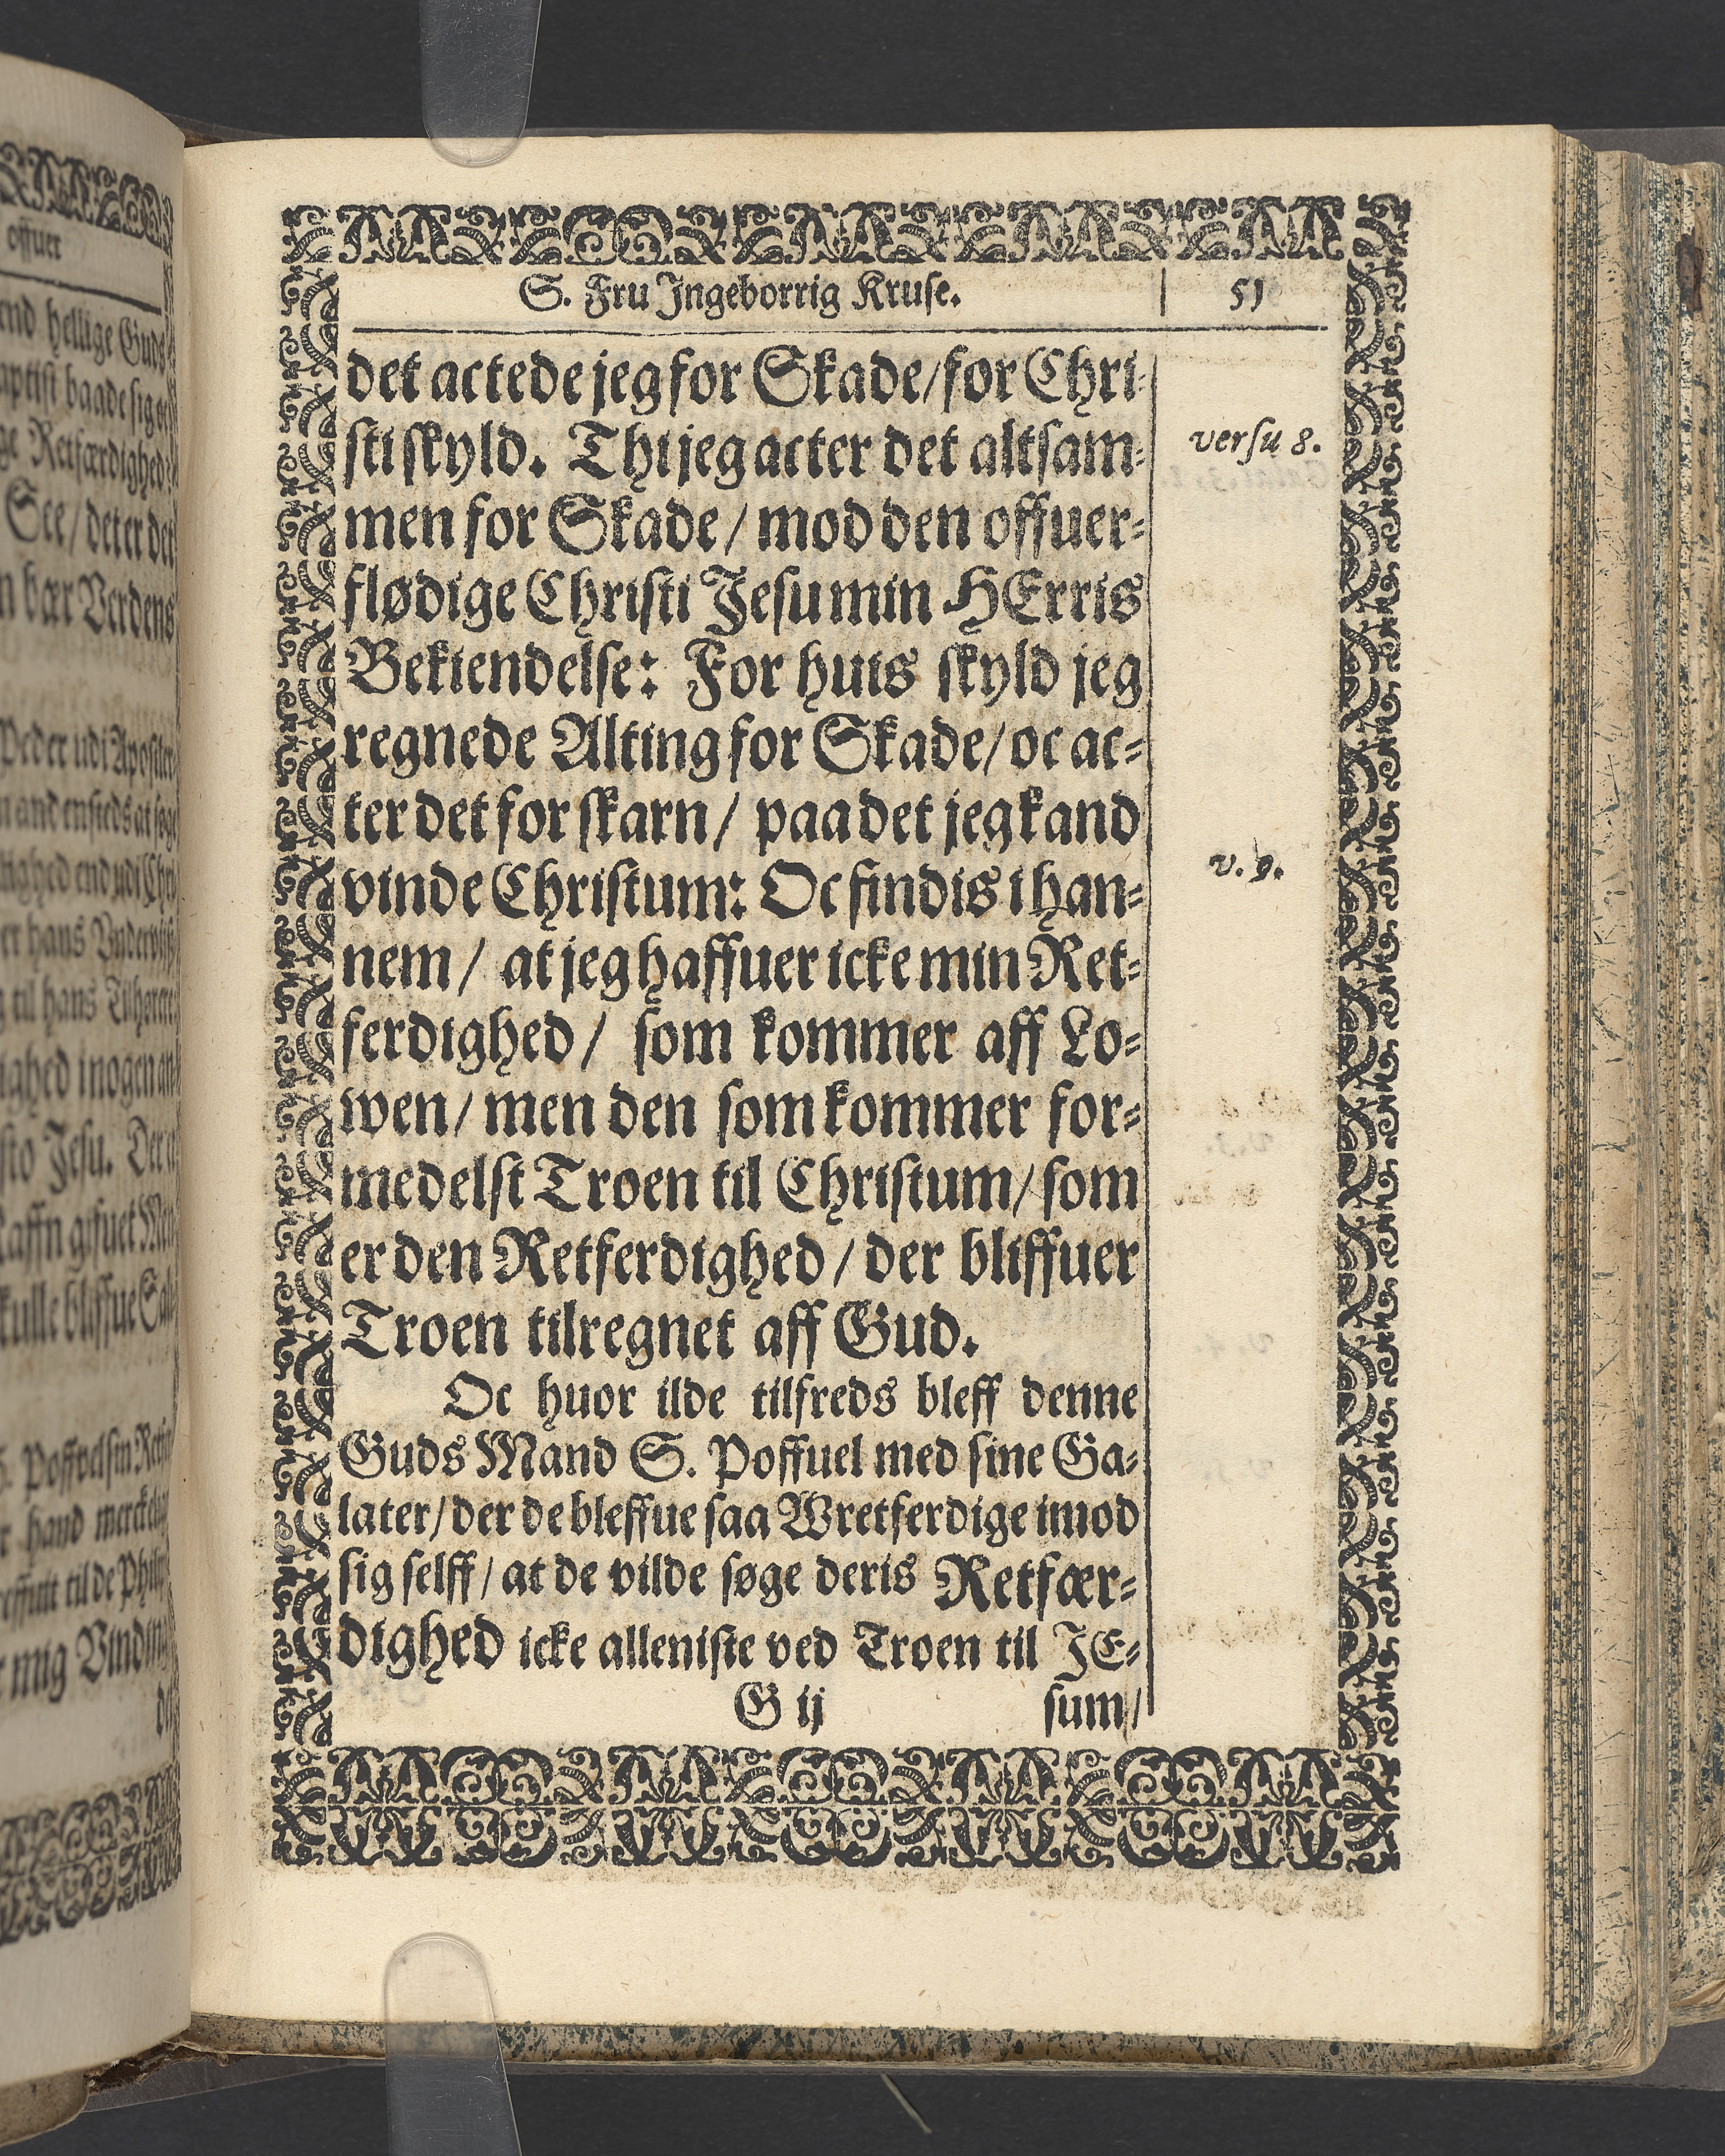 offuer
end hellige Guds
baade sig
Retfærdighed
See/ det er det
bær Verdens
Peder udi
til hans
Jesu.
mig
S. Fru Ingeborrig Kruse. 51
det actede jeg for Skade/ for Chri-
sti skyld. Thi jeg acter det altsam-
versu 8.
men for Skade/ mod den offuer-
flødige Christi Jesu min HErris
Bekiendelse: For huis skyld jeg
regnede Alting for Skade/ oc ac-
ter det for skarn/ paa det jeg kand
vinde Christum: Oc findis i han-
v. 9.
nem/ at jeg haffuer icke min Ret-
ferdighed/ som kommer aff Lo-
wen/ men den som kommer for-
medelst Troen til Christum/ som
er den Retferdighed/ der bliffuer
Troen tilregnet aff Gud.
Oc huor ilde tilfreds bleff denne
Guds Mand S. Poffuel med sine Ga-
later/ der de bleffue saa Wretferdige imod
sig selff/ at de vilde søge deris Retfær-
dighed icke alleniste ved Troen til JE-
G ij sum/